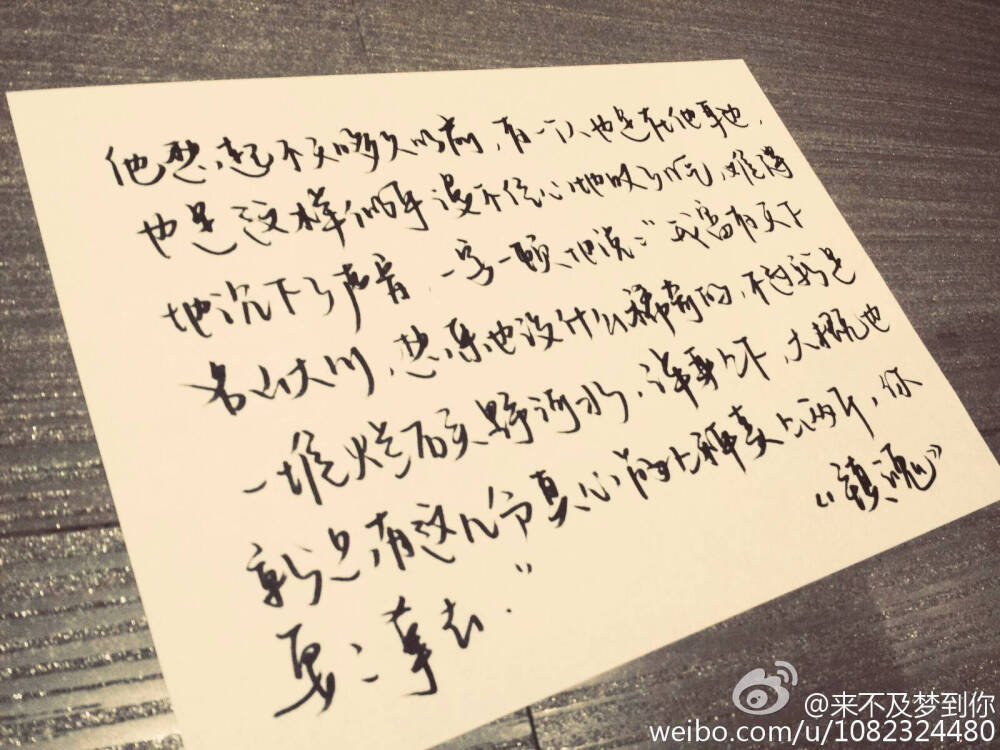 他想起不久以前,有一个人也是在他耳边,
也是这样似乎漫不经心地叹了口气,难得
地沉下了声音,一字一顿地说:“我富有天下
名山大川,想来也没什么稀奇的,不过就是
一堆烂石头野河水,浑身上下,大概也
就只有这几分真心能上称卖上两斤,你
要,拿去.”
《镇魂》
@来不及梦到你
weibo.com/u/1082324480